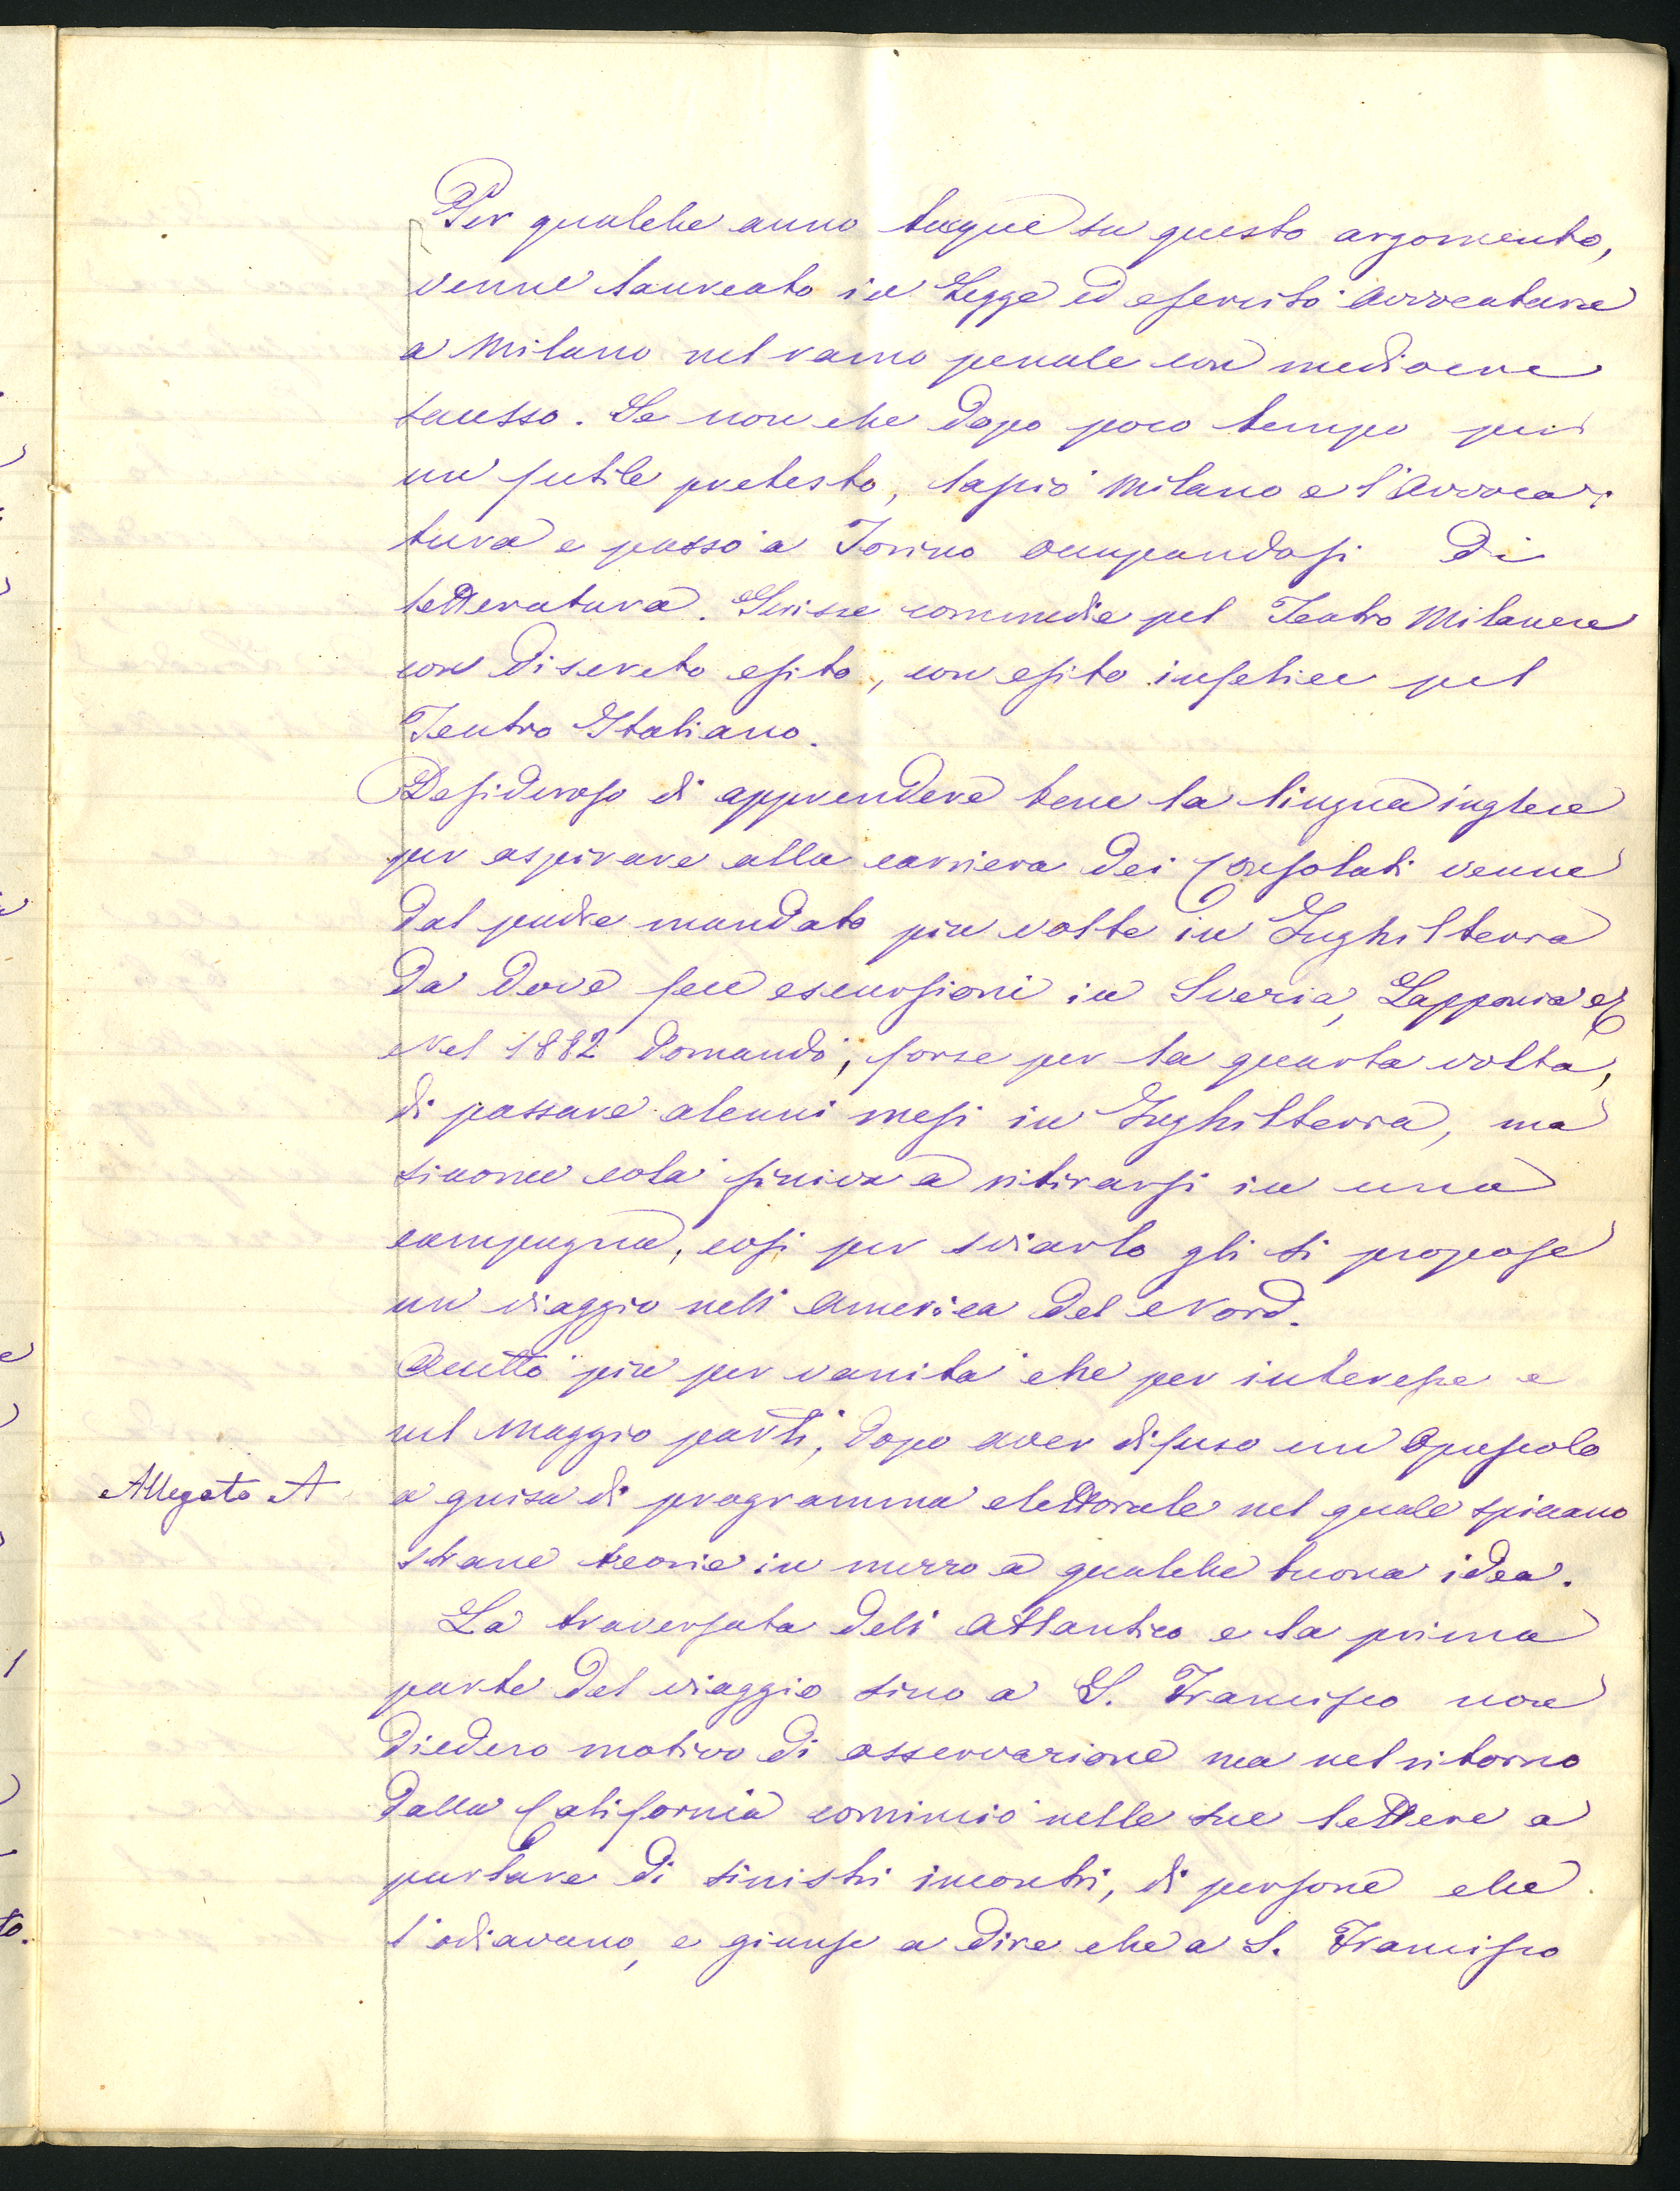 Per qualche anno tacque su questo argomento,
venne laureato in Legge ed esercitò avvocatura
a Milano nel ramo penale con mediocre
successo. Se non che dopo poco tempo per
un futile pretesto, lasciò Milano e l'avvoca-
tura e passò a Torino occupandosi di
letteratura. Scrisse commedie pel Teatro Milanese
con discreto esito, con esito infelice pel
Teatro Italiano.
Desideroso di apprendere bene la lingua inglese
per aspirare alla carriera dei Consolati venne
dal padre mandato più volte in Inghilterra
da dove fece escursioni in Svezia, Lapponia
Nel 1882 domandò, forse per la quarta volta,
di passare alcuni mesi in Inghilterra, ma
siccome colà finiva a ritirarsi in una
campagna, così per sviarlo gli si propose
un viaggio nell'America del Nord.
Accettò più per vanità che per interesse e
nel Maggio partì, dopo aver diffuso un opuscolo
Allegato A
a guisa di programma elettorale nel quale spiccano
strane teorie in mezzo a qualche buona idea.
La traversata dell'Atlantico e la prima
parte del viaggio sino a S. Francisco non
diedero motivo di osservazione ma nel ritorno
dalla California cominciò nelle sue lettere a
parlare di sinistri incontri, di persone che
l'odiavano, e giunse a dire che a S. Francisco